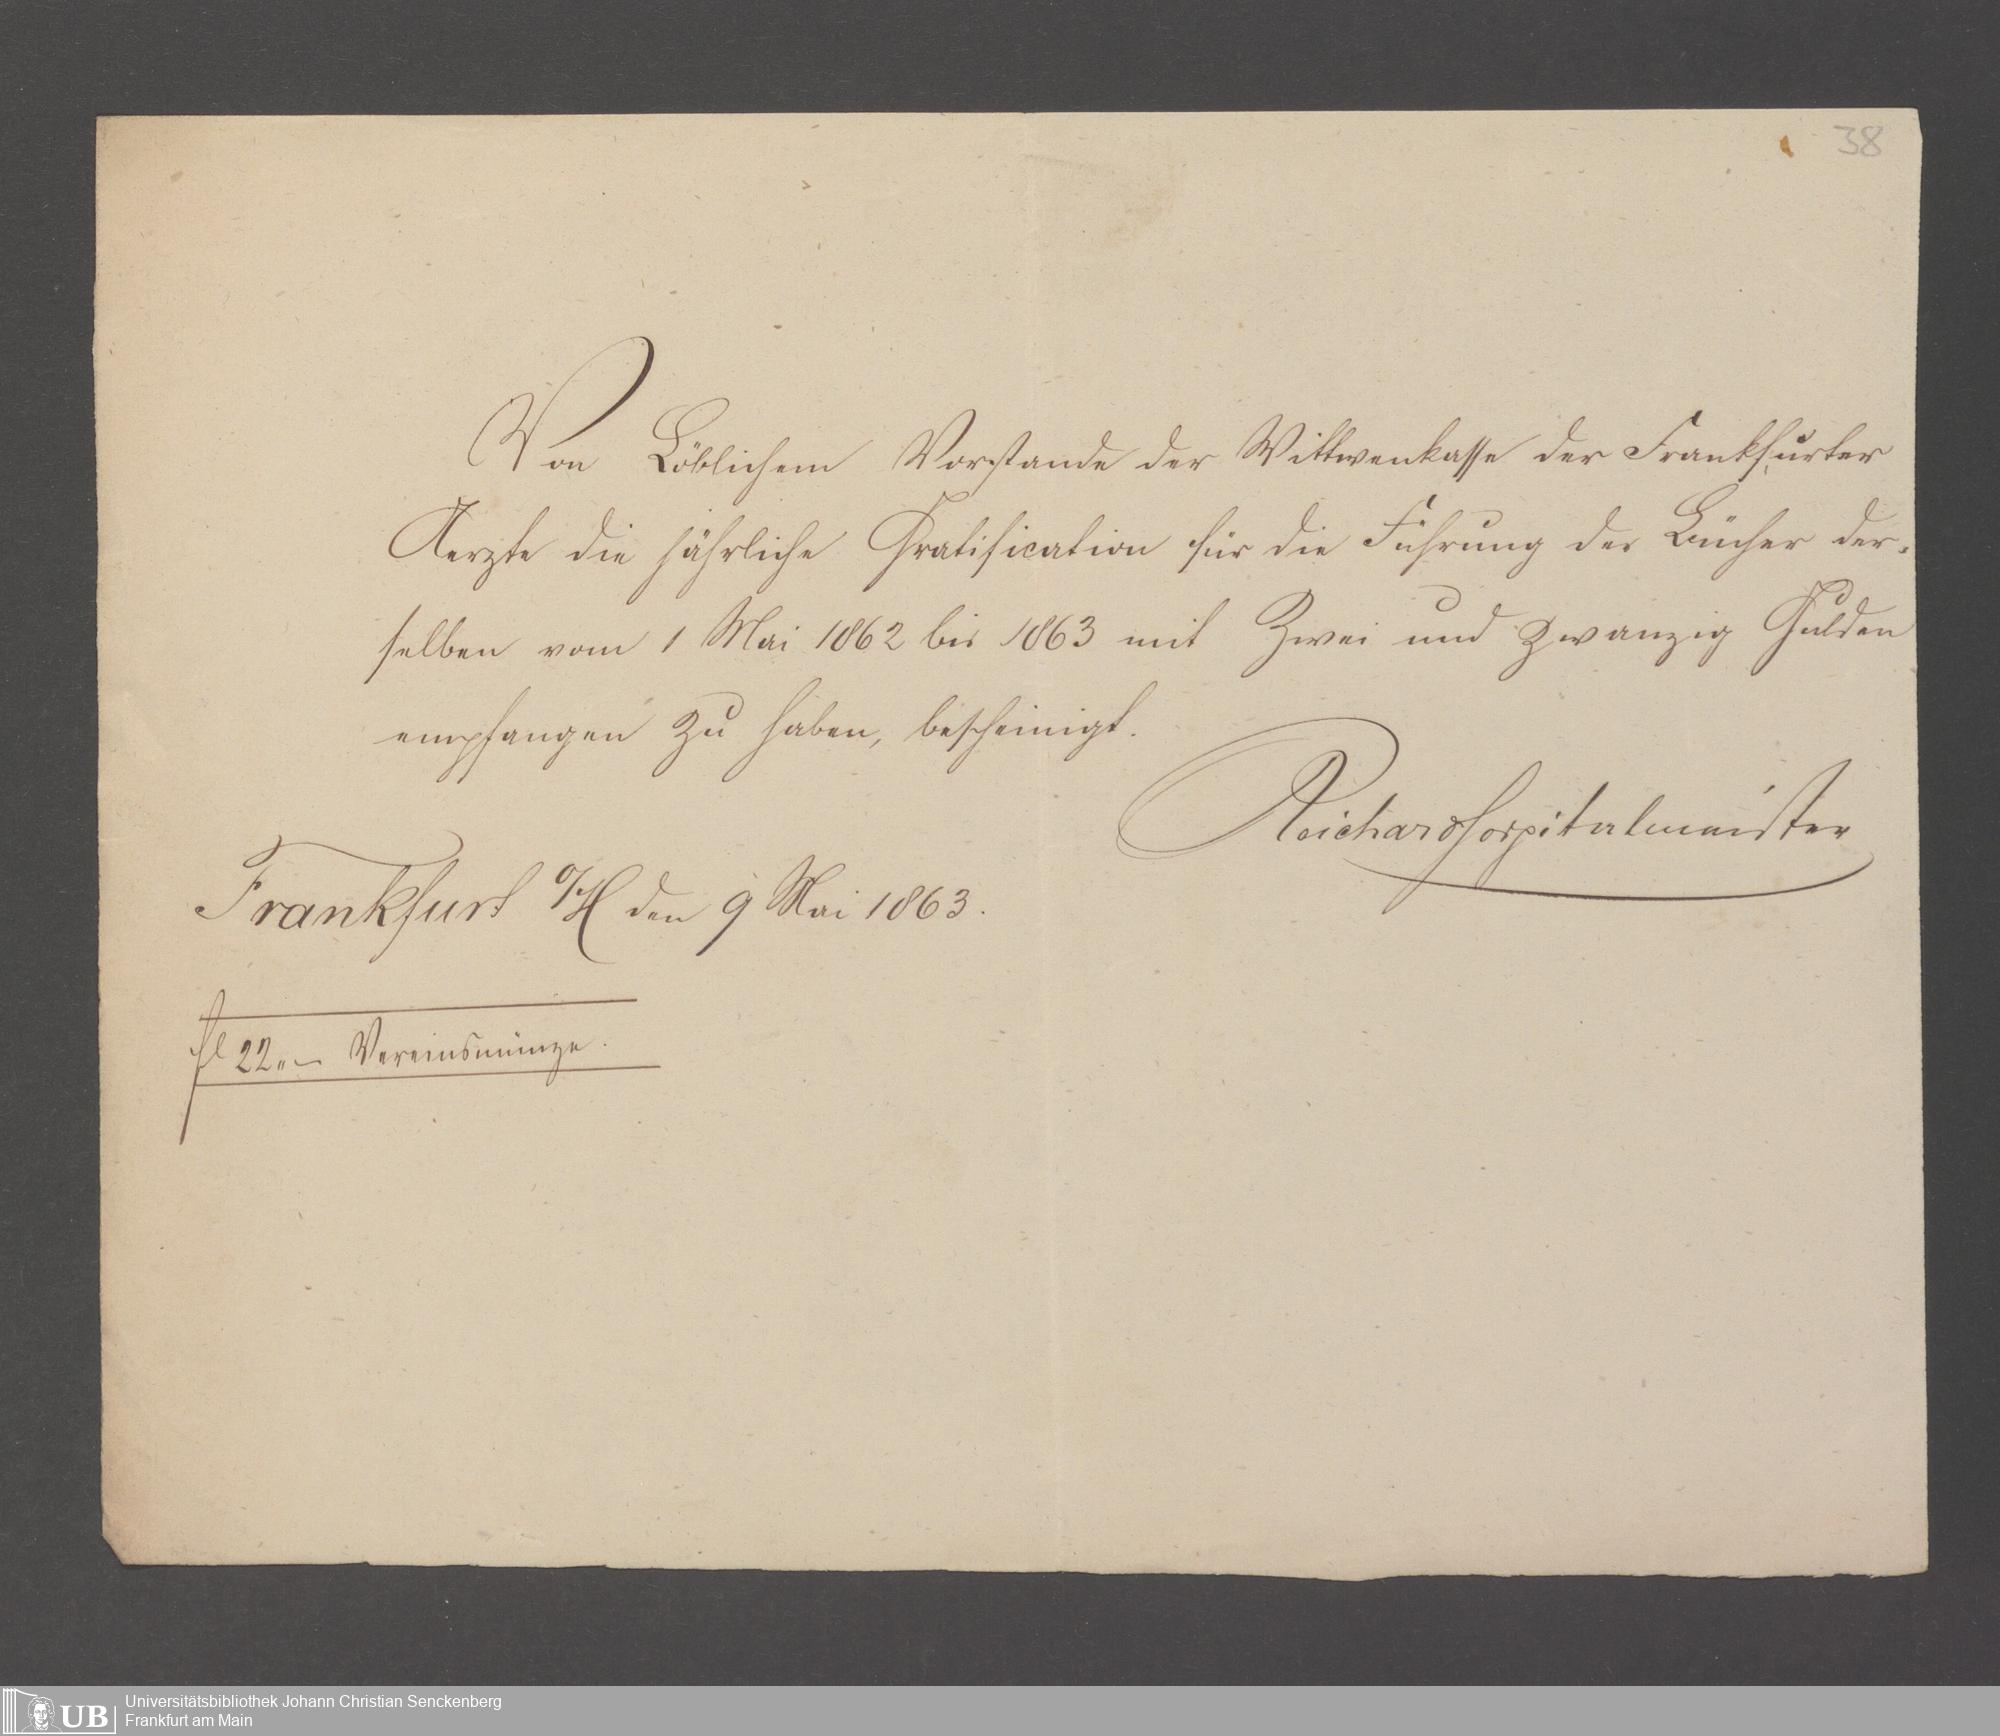 38
Von Löblichem Vorstande der Wittwenkasse der Frankfurter
Aerzte die jährliche Gratification für die Führung der Bücher der-
selben vom 1 Mai 1862 bis 1863 mit Zwei und Zwanzig Gulden
empfangen zu haben, bescheinigt.
Reichard Hospitalmeister
Frankfurt a/M den 9 Mai 1863.
fl 22 „ – Vereinsmünze.
UB Universitätsbibliothek Johann Christian Senckenberg
Frankfurt am Main